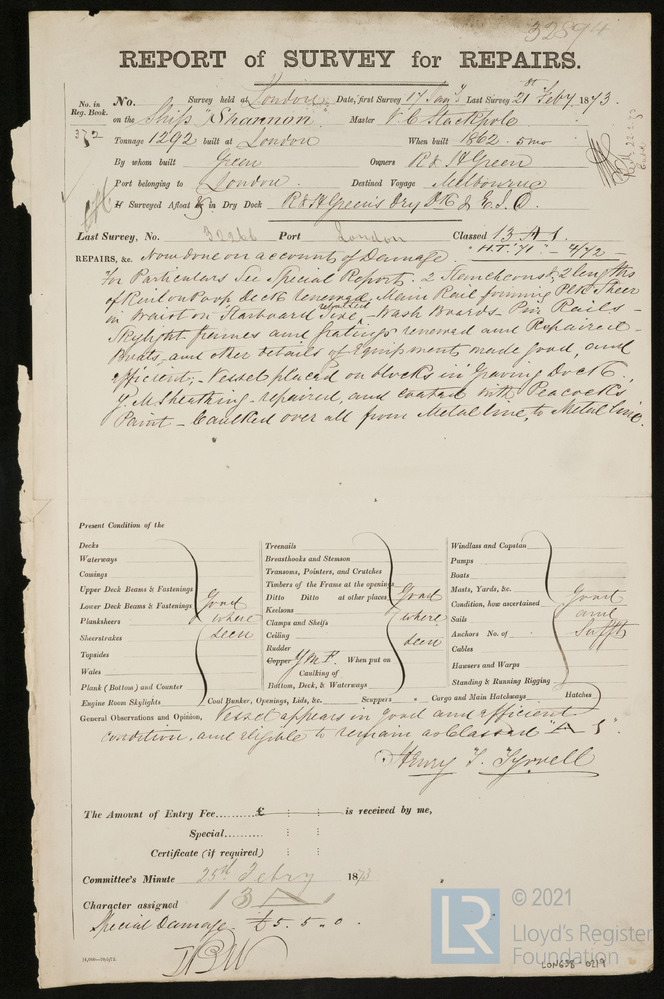 32894
REPORT of SURVEY for REPAIRS.
No. in Reg. Book. No. Survey held at London, Date, first Survey 17 Jan'y Last Survey 21st Feby 1873.
372 on the Ship "Shannon" Master
Tonnage 1292 built at London When built 1862. 5 mo
By whom built Green Owners R & H Green
Port belonging to London. Destined Voyage Melbourne
If Surveyed Afloat or in Dry Dock R & H Green's Dry Dk & E.I.D.
Last Survey, No. 32266 Port London Classed 13 A 1.
"H.T. 71" – 4/72 –
REPAIRS, &c. Now done on account of Damage.
For Particulars See Special Report. 2 Stancheons, 2 lengths
of Rail on Poop Deck renewed, Main Rail forming
in Waist on Starboard Side, repaired – Wash Boards – Pin Rails –
Skylight frames and Gratings renewed and Repaired –
Boats, and other details of Equipment made good, and
efficient; – Vessel placed on blocks in Graving Dock,
Y.M. Sheathing – repaired, and coated with Peacock's
Paint – Caulked over all from Metal line, to Metal line.
Present Condition of the
Decks
Waterways
Comings
Upper Deck Beams & Fastenings
Lower Deck Beams & Fastenings
Planksheers
Sheerstrakes
Topsides
Wales
Plank (Bottom) and Counter
Engine Room Skylights
Good
where
seen
Treenails
Breasthooks and Stemson
Transoms, Pointers, and Crutches
Timbers of the Frame at the openings
Ditto Ditto at other places
Keelsons
Clamps and Shelfs
Ceiling
Rudder
Copper Y.M.F. When put on
Caulking of
Bottom, Deck, & Waterways
Good
where
seen
Coal Bunker, Openings, Lids, &c. Scuppers Cargo and Main Hatchways Hatches
Windlass and Capstan
Pumps
Boats
Masts, Yards, &c.
Condition, how ascertained
Sails
Anchors No. of
Cables
Hawsers and Warps
Standing & Running Rigging
Good
and
Sufft
General Observations and Opinion, Vessel appears in good and efficient
condition, and eligible to remain as Classed "A 1".
Henry T. Tyrrell
The Amount of Entry Fee......... £ : : is received by me,
Special......... : :
Certificate (if required) : :
Committee's Minute 25th Febry 1873
Character assigned 13 A 1
Special Damage £5. 5. 0.
LR
© 2021
Lloyd's Register
Foundation
LON638-0219